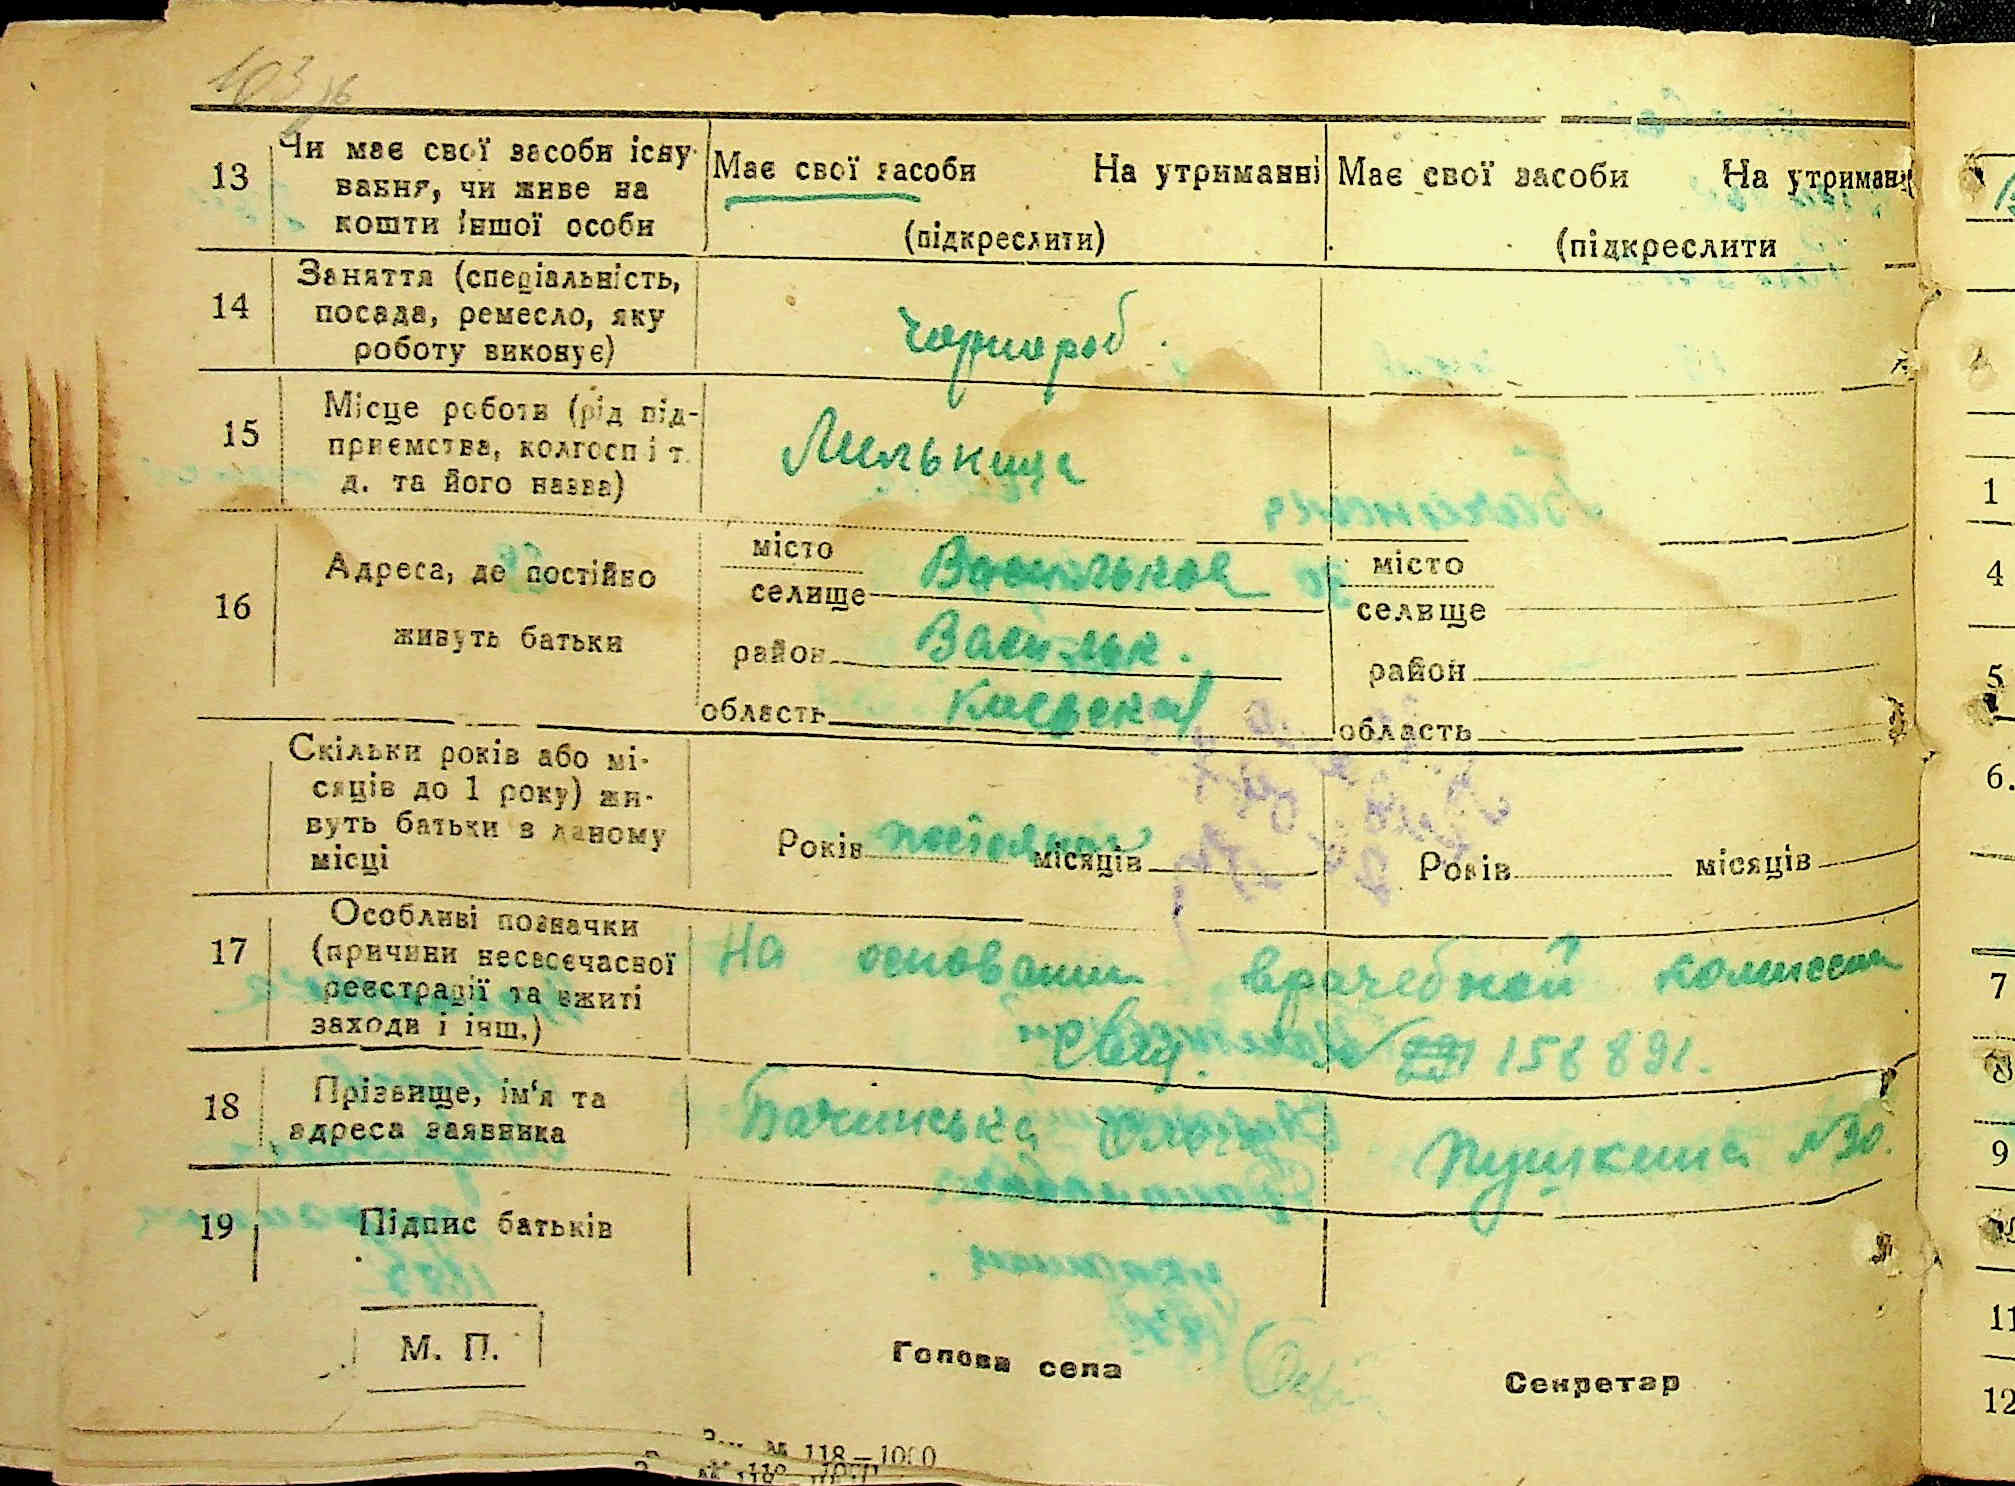 103 зв
13 Чи має свої засоби існу-
вання, чи живе на
кошти іншої особи
Має свої засоби На утриманні
(підкреслити)
Має свої засоби На утриман
(підкреслити
14 Заняття (спеціальність,
посада, ремесло, яку
роботу виконує)
Чорнороб.
15 Місце роботи (рід під-
приємства, колгосп і т.
д. та його назва)
Мельница
16 Адреса, де постійно
живуть батьки
місто
селище Васильков
район Васильк.
область Киевская
місто
селище
район
область
Скільки років або мі-
сяців до 1 року) жи-
вуть батьки в даному
місці
Років постоянно місяців
Років місяців
17 Особливі позначки
(причини несвоєчасної
реєстрації та вжиті
заходи і інш.)
На основании врачебной комиссии
свид. № 156891.
18 Прізвище, ім'я та
адреса заявника
Бачинська Пушкина №30.
19 Підпис батьків
М. П.
Голова села
Секретар
М 118—1000
1
4
5
6.
7
8
9
11
12